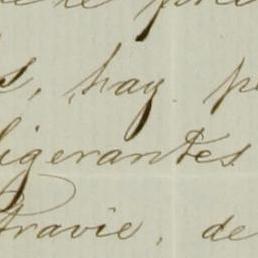 s, hay p
ligerantes
travie, de